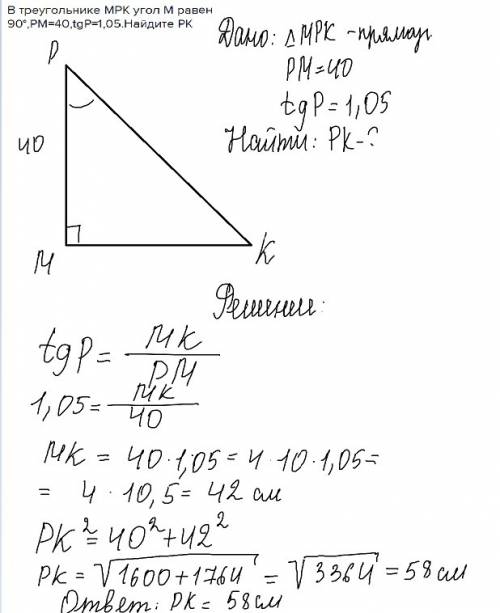 В треугольнике МРК угол М равен
90°,РМ=40,tgР=1,05.Найдите РК
Дано: △МРК -прямоуг
РМ=40
tgР=1,05
Найти: РК-?
Р
40
М
К
Решение:
tgР= МК/РМ
1,05= МК/40
МК = 40·1,05=4·10·1,05=
= 4·10,5= 42 см
РК²=40²+42²
РК=√1600+1764 = √3364 =58см
Ответ: РК= 58см